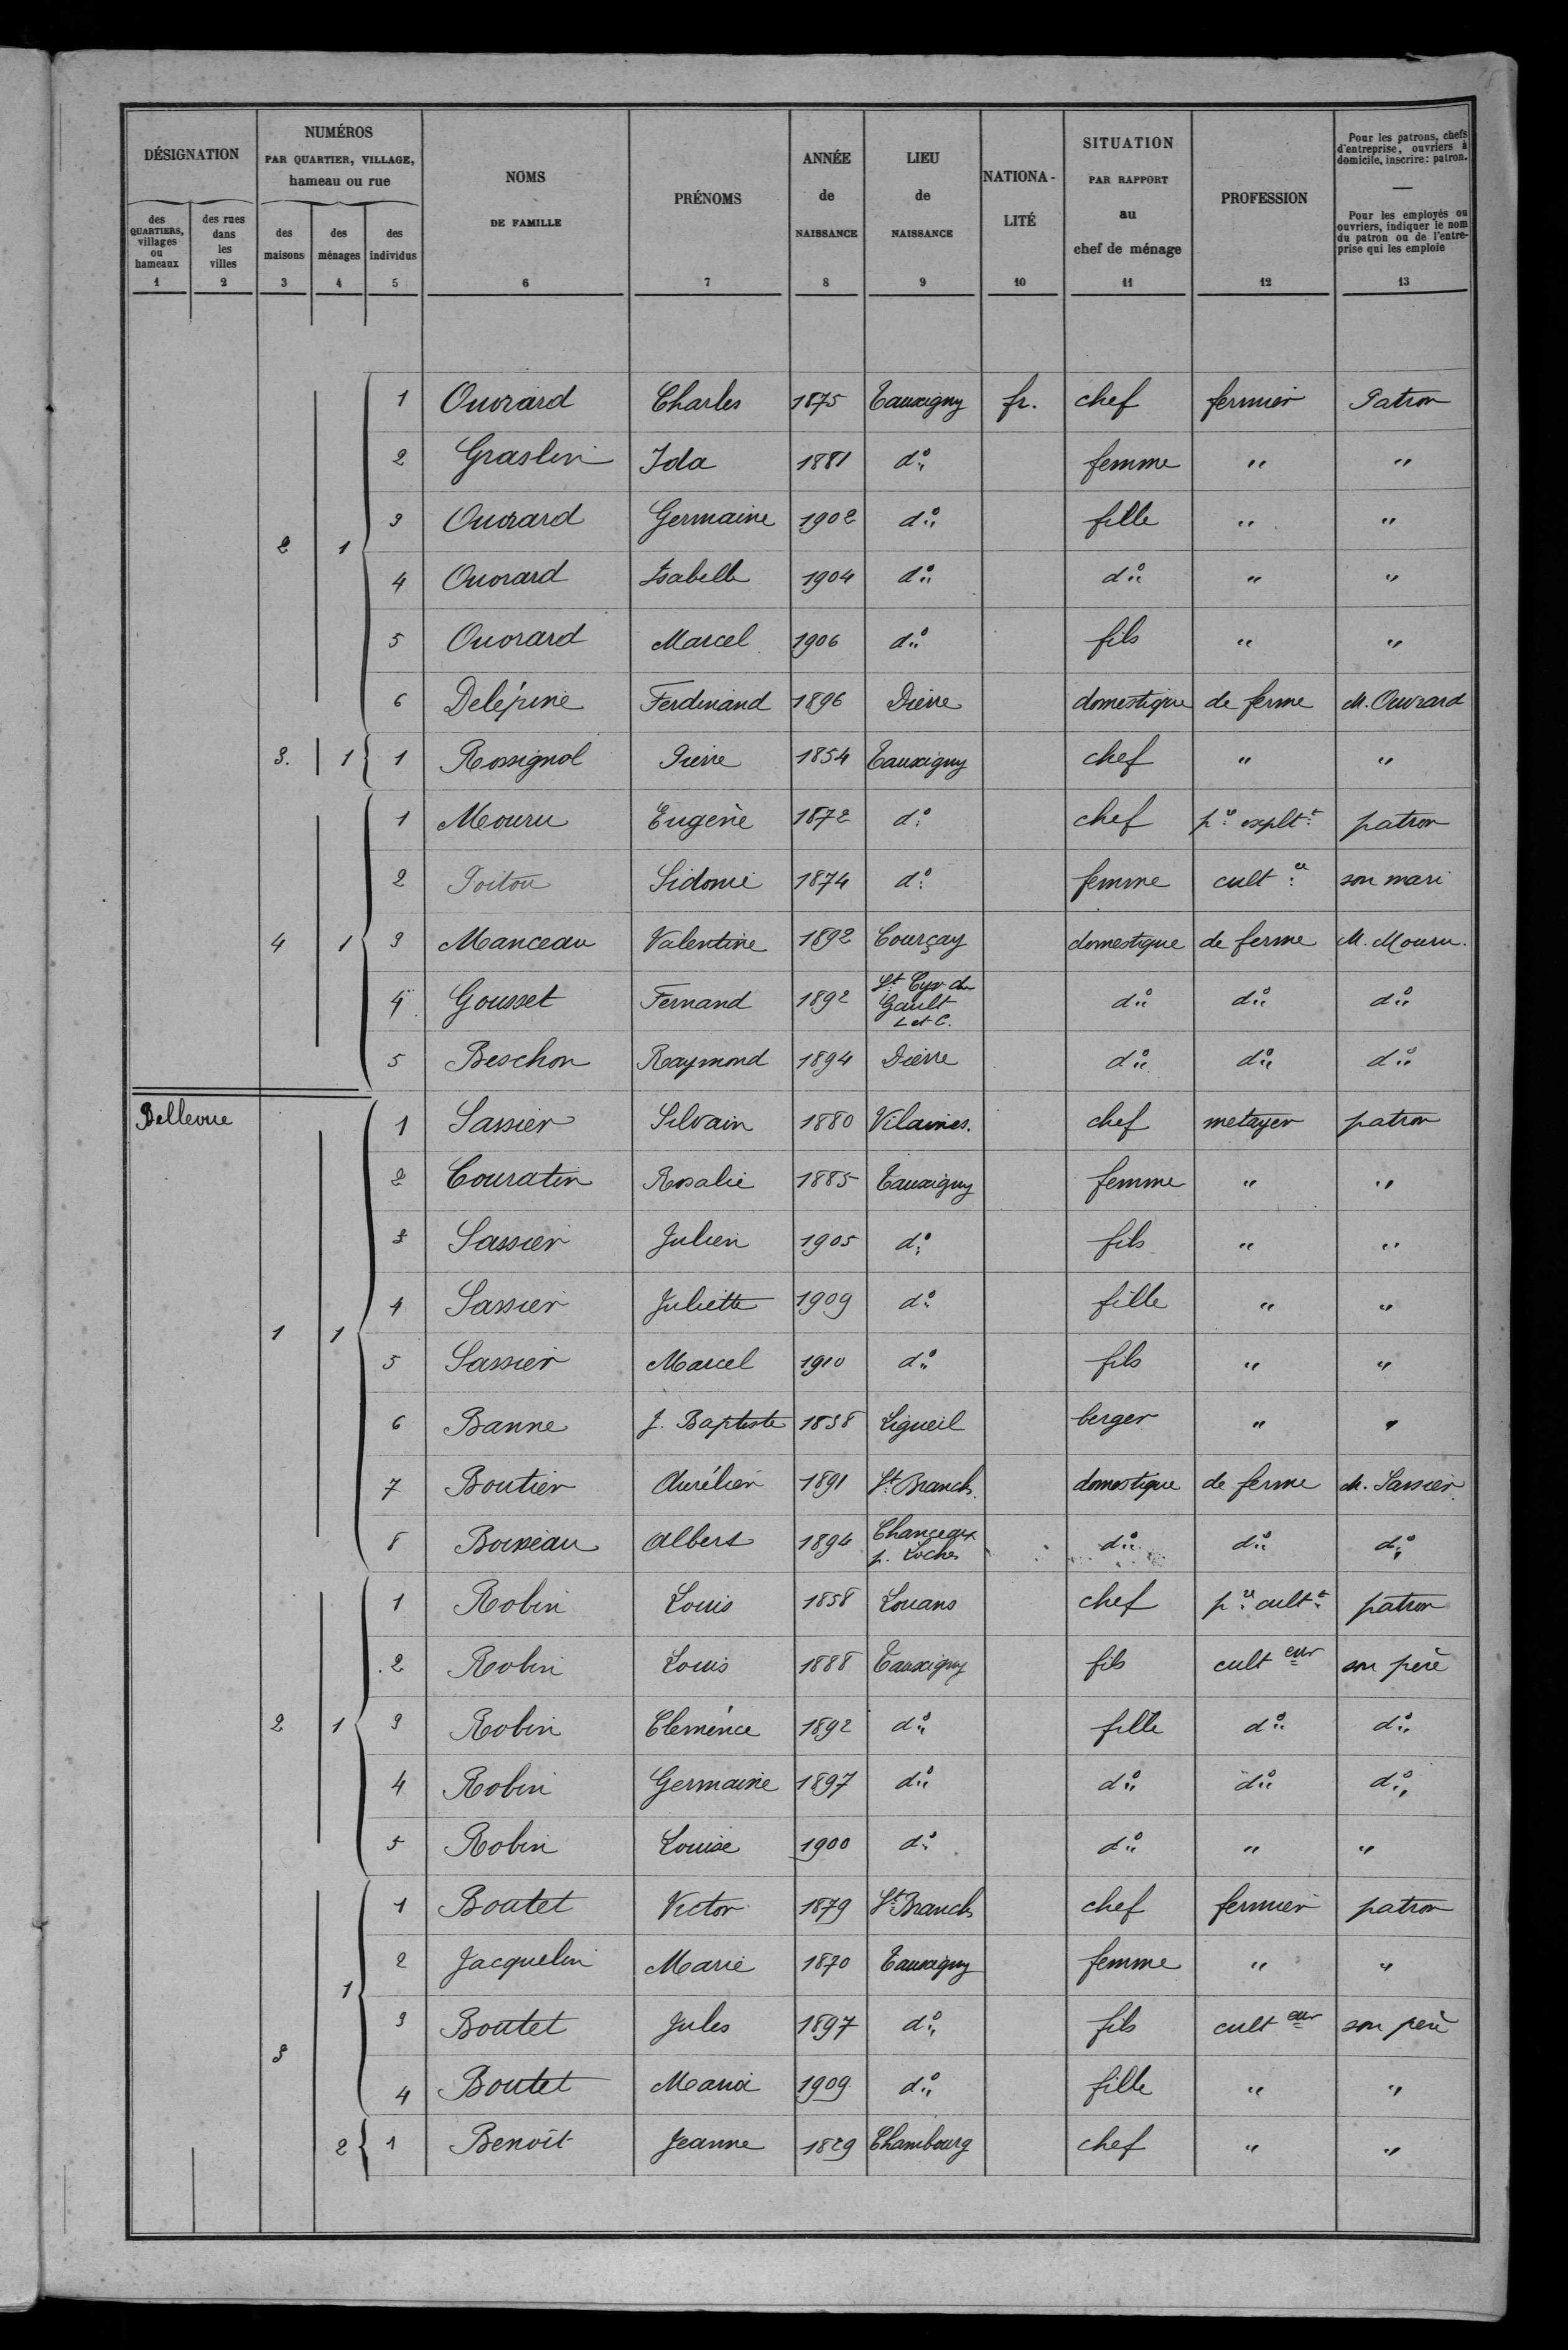 DÉSIGNATION
des QUARTIERS, villages ou hameaux
des rues dans les villes
NUMÉROS
PAR QUARTIER, VILLAGE,
hameau ou rue
des maisons
des ménages
des individus
NOMS
DE FAMILLE
PRÉNOMS
ANNÉE
de
NAISSANCE
LIEU
de
NAISSANCE
NATIONA-
LITÉ
SITUATION
PAR RAPPORT
au
chef de ménage
PROFESSION
Pour les patrons, chefs
d'entreprise, ouvriers à
domicile, inscrire: patron.
—
Pour les employés ou
ouvriers, indiquer le nom
du patron ou de l'entre-
prise qui les emploie
1 2 3 4 5 6 7 8 9 10 11 12 13
1 Ouvrard Charles 1875 Tauxigny fr. chef fermier Patron
2 Graslin Ida 1881 d° femme " "
3 Ouvrard Germaine 1902 d° fille " "
2 1
4 Ouvrard Isabelle 1904 d° d° " "
5 Ouvrard Marcel 1906 d° fils " "
6 Delépine Ferdinand 1896 Dierre domestique de ferme M. Ouvrard
3. 1 1 Rossignol Pierre 1854 Tauxigny chef " "
1 Mouru Eugène 1872 d° chef p.re explt.t patron
2 Poitou Sidonie 1874 d° femme cult.ce son mari
4 1 3 Manceau Valentine 1892 Courçay domestique de ferme M. Mouru.
4 Gousset Fernand 1892 St Cyr du Gault L et C. d° d° d°
5 Beschon Raymond 1894 Dierre d° d° d°
Bellevue
1 Sassier Silvain 1880 Vilaines. chef metayer patron
2 Couratin Rosalie 1885 Tauxigny femme " "
3 Sassier Julien 1905 d° fils " "
4 Sassier Juliette 1909 d° fille " "
1 1
5 Sassier Marcel 1910 d° fils " "
6 Banne J. Baptiste 1838 Ligueil berger " "
7 Boutier Aurélien 1891 St Branch. domestique de ferme M. Sassier
8 Boisseau Albert 1894 Chanceaux p. Loches d° d° d°
1 Robin Louis 1858 Louans chef p.re cult.r patron
2 Robin Louis 1888 Tauxigny fils cult eur son père
2 1 3 Robin Clémence 1892 d° fille d° d°
4 Robin Germaine 1897 d° d° d° d°
5 Robin Louise 1900 d° d° " "
1 Boutet Victor 1879 St Branch chef fermier patron
2 Jacquelin Marie 1870 Tauxigny femme " "
1
3 Boutet Jules 1897 d° fils cult eur son père
3
4 Boutet Maria 1909 d° fille " "
2 1 Benoît Jeanne 1829 Chambourg chef " "